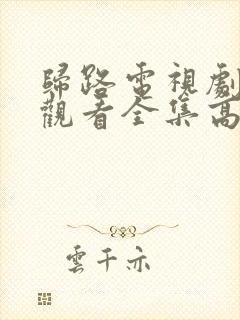 歸路電視劇
觀看全集高
雲千亦